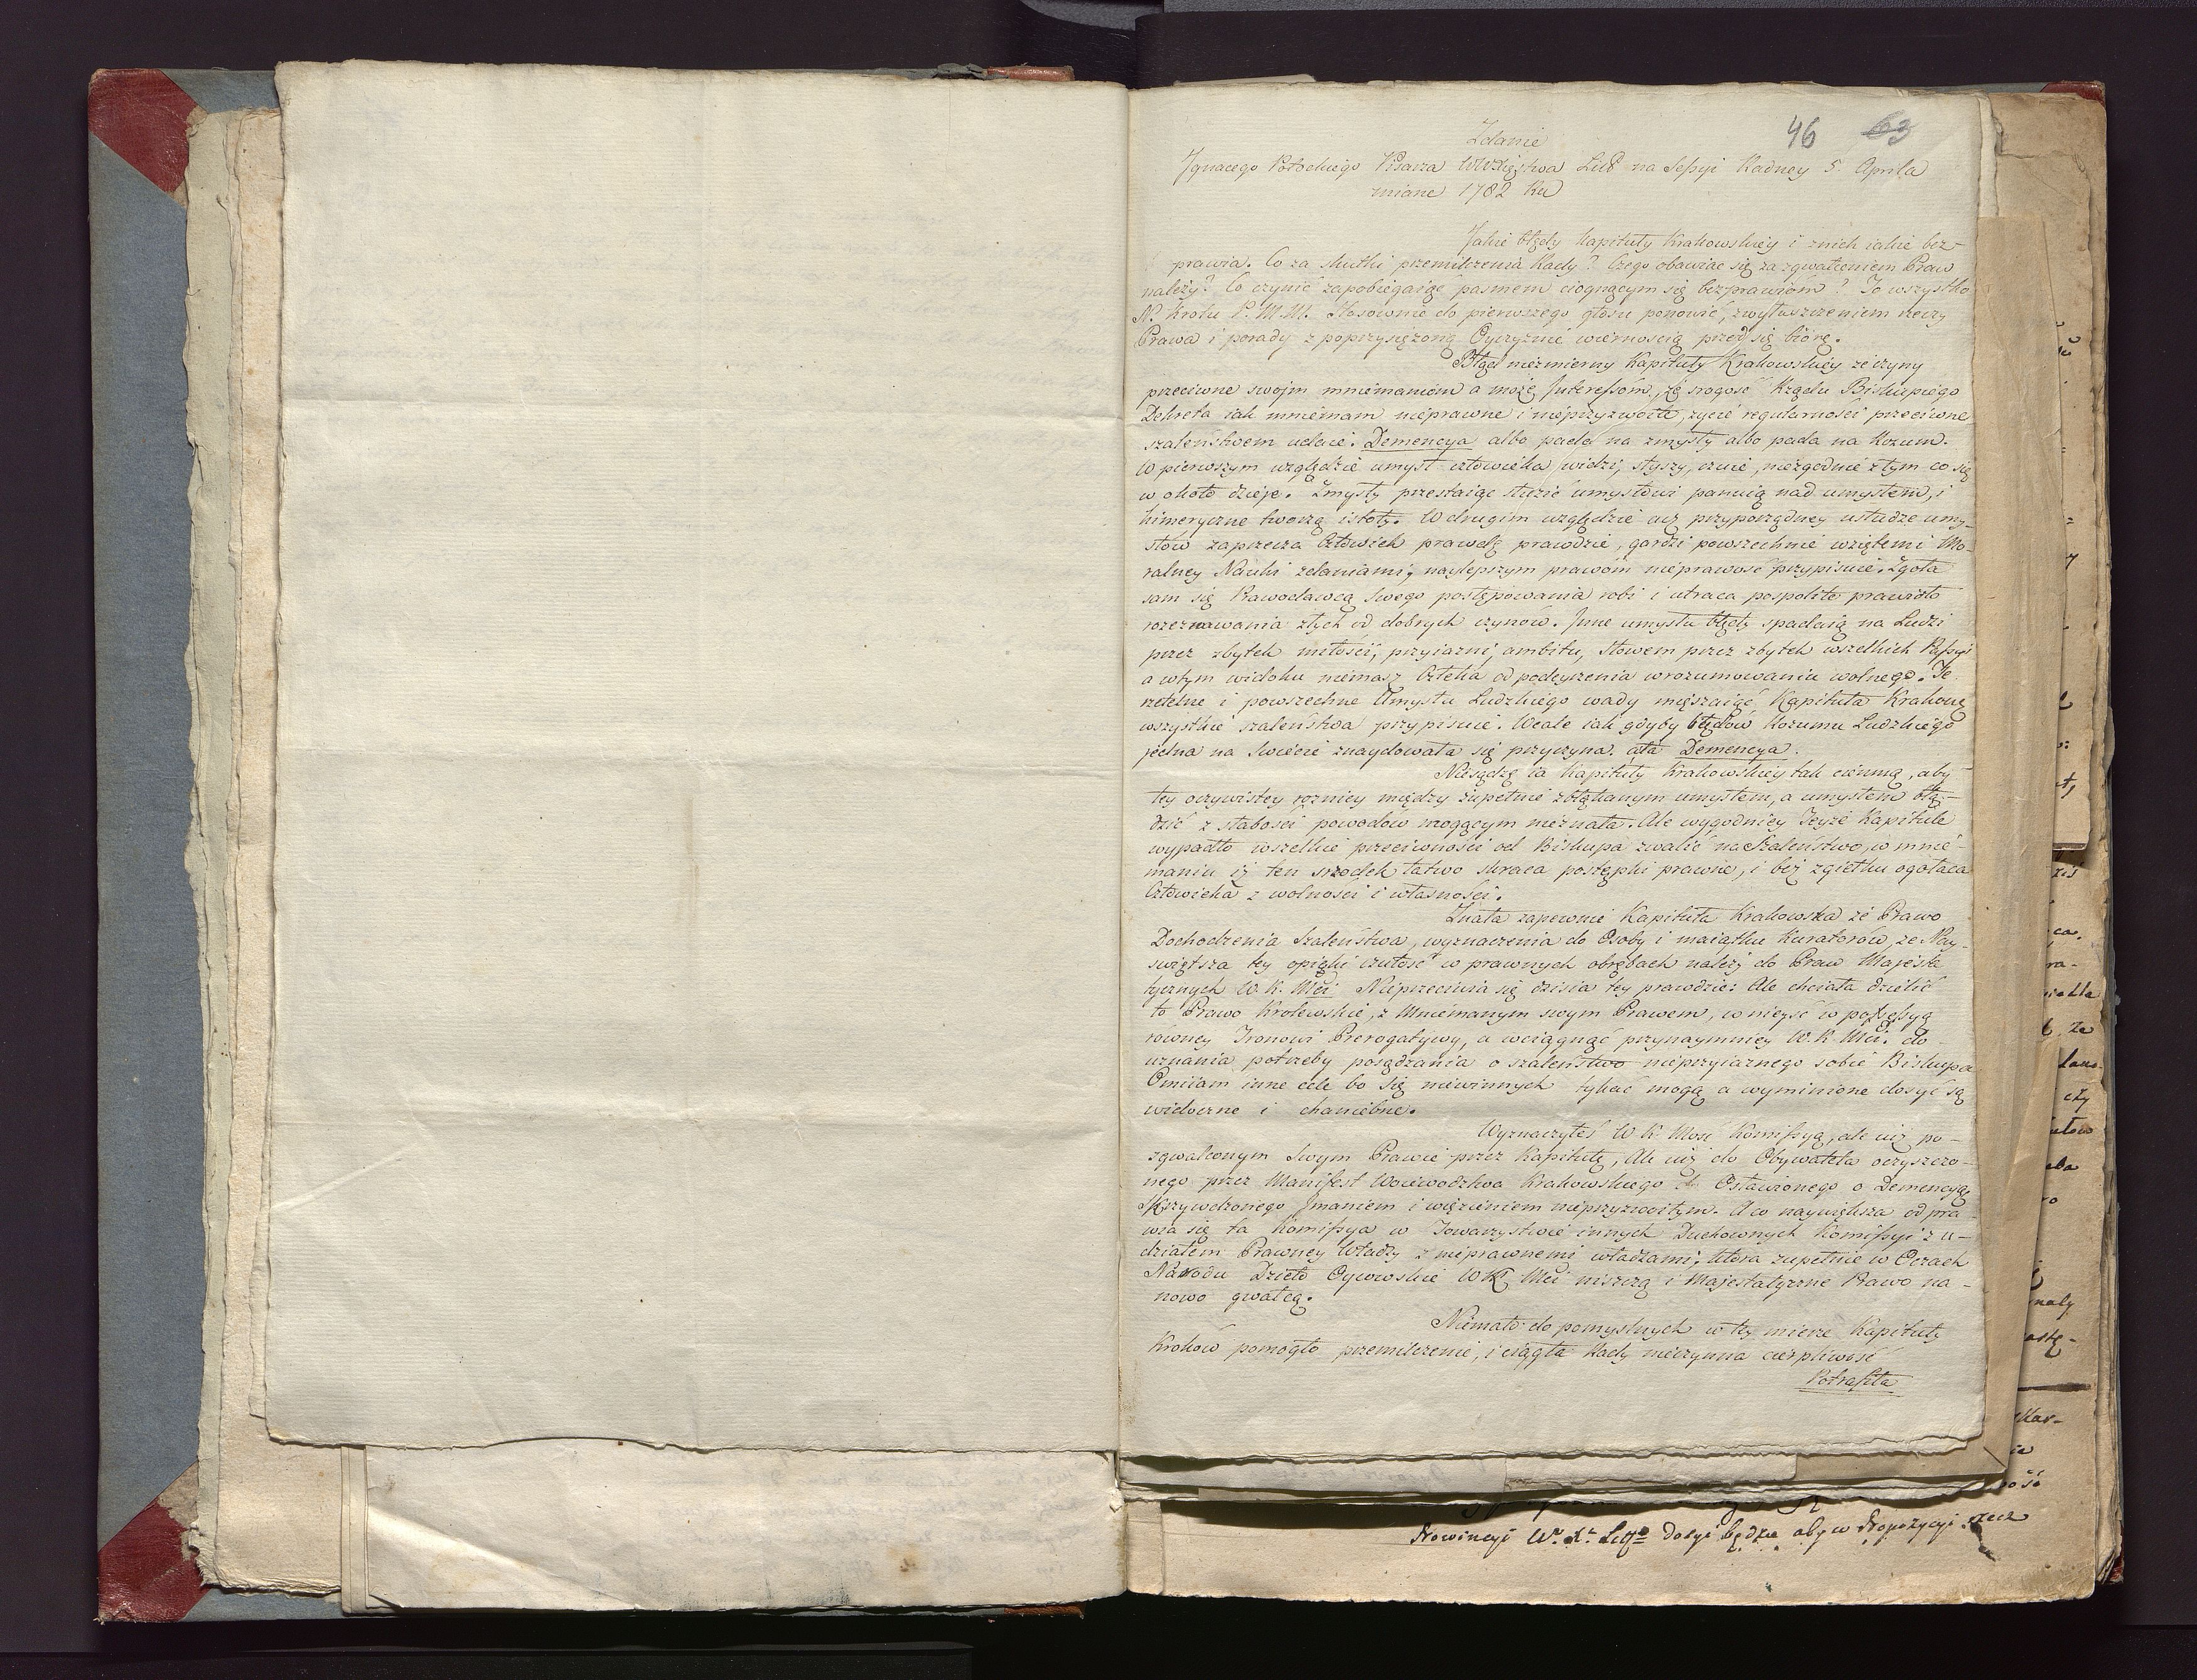 46 63
Zdanie
Jgnacego Potockiego Pisarza WWXięstwa Litt na Sessyi Radney 5. Aprila
miane 1782 Ru
Jakie błędy Kapituły Krakowskiey i znich iakie bez-
prawia. Co za skutki przemilczenia Rady? Czego obawiac się za zgwałceniem Praw
należy? Co czynić zapobiegaiąc pasmem ciągnącym się bezprawiom? To wszystko
N. Krolu P. M. M. stosownie do pierwszego głosu ponowić, zwyłuszczeniem rzeczy
Prawa i porady z poprzysiężoną Oyczyznie wiernoscią przed się biorę.
Błąd niezmierny Kapituły Krakowskiey ze czyny
przeciwne swojm mniemaniom a może Jnteressom, że srogość Rządu Biskupiego
Dekreta iak mniemam nieprawne i nieprzyzwoite, życie regularności przeciwne
szalenstwem udaie. Demencya albo pada na zmysły albo pada na Rozum.
W pierwszym względzie umysł człowieka widzi, słyszy, czuie, niezgodnie z tym co się
w około dzieje. Zmysły przestaiąc służić umysłowi panuią nad umysłem, i
himeryczne tworzą istoty. W drugim względzie acz przyporządney usłudze umy-
słow zaprzecza Człowiek prawdę prawdzie, gardzi powszechnie wziętemi Mo-
ralney Nauki zdaniami, naylepszym prawom nieprawosć przypisuie. Zgoła
sam się Prawodawcą swego postępowania robi i utraca pospolite prawidło
rozeznawania złych od dobrych czynów. Jnne umysłu błędy spadaią na Ludzi
przez zbytek miłości, przyiazni, ambitu, słowem przez zbytek wszelkich Passyi
a wtym widoku niemasz Człeka od podeyzrzenia wrozumowaniu wolnego. Te
rzetelne i powszechne Umysłu Ludzkiego wady mięszaiąc Kapituła Krakows
wszystkie szaleństwa przypisuie. Wcale iak gdyby błędow Rozumu Ludzkiego
jedna na Swiecie znaydowała się przyczyna. ata Demencya.
Niesądzę ia Kapituły Krakowskiey tak ciemną, aby
tey oczywistey roznicy między zupełnie zbłąkanym umysłem, a umysłem błą-
dzić z słabosci powodow mogącym nieznała. Ale wygodniey Teyże Kapitule
wypadło wszelkie przeciwności od Biskupa zwalić na Szaleństwo, w mnie-
maniu iż ten srzodek łatwo skraca postępki prawne, i bez zgiełku ogołaca
Człowieka z wolności i własności.
Znała zapewnie Kapituła Krakowska że Prawo
Dochodzenia Szaleństwa, wyznaczenia do Osoby i maiątku Kuratorów, że Nay-
swiętsza tey opieki czułość w prawnych obrębach należy do Praw Majesta
tycznych W. K. Mci. Nieprzeciwia się dzisia tey prawdzie: Ale chciała dzielić
to Prawo Krolewskie, z Mniemanym swym Prawem, wnieyść w possessyą
równey Tronowi Prerogatywy, a wciągnąć przynaymniey W. K. Mci. do
uznania potrzeby posądzania o szaleństwo nieprzyiaznego sobie Biskupa
Omiiam inne cele bo się niewinnych tykać mogą a wymienione dosyć są
widoczne i chaniebne.
Wyznaczyłeś W K Mosc Komissyą, ale iuż po-
zgwalconym Swym Prawie przez Kapitułę, Ale iuż do Obywatela oczyszczo-
nego przez Manifest Woiewodztwa Krakowskiego Osławionego o Demencyą
Skrzywdzonego Jmaniem i więzieniem nieprzyzwoitym. A co naywiększa odpra-
wia się ta Komissya w Towarzystwie innych Duchownych Komissyi z u-
działem Prawney Władzy z nieprawnemi władzami, ktora zupełnie w Oczach
Narodu Dzieło Oycowskie W K Mci niszczą i Majestatyczne Prawo na-
nowo gwałcą.
Niemało do pomyslnych w tey mierze Kapituły
Krokow pomogło przemilczenie, i ciągła Rady nieczynna cierpliwość
Potrafiła
Prowincyi W. X. Litt dosyć będzie aby w Propozycyi rzecz